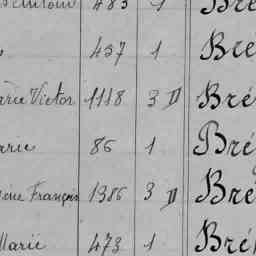 483 1 Bré
437 1 Bre
arie Victor 1118 3 D Bré
arie 86 1 Bré
François 1386 3 D Bré
Marie 473 1 Bré